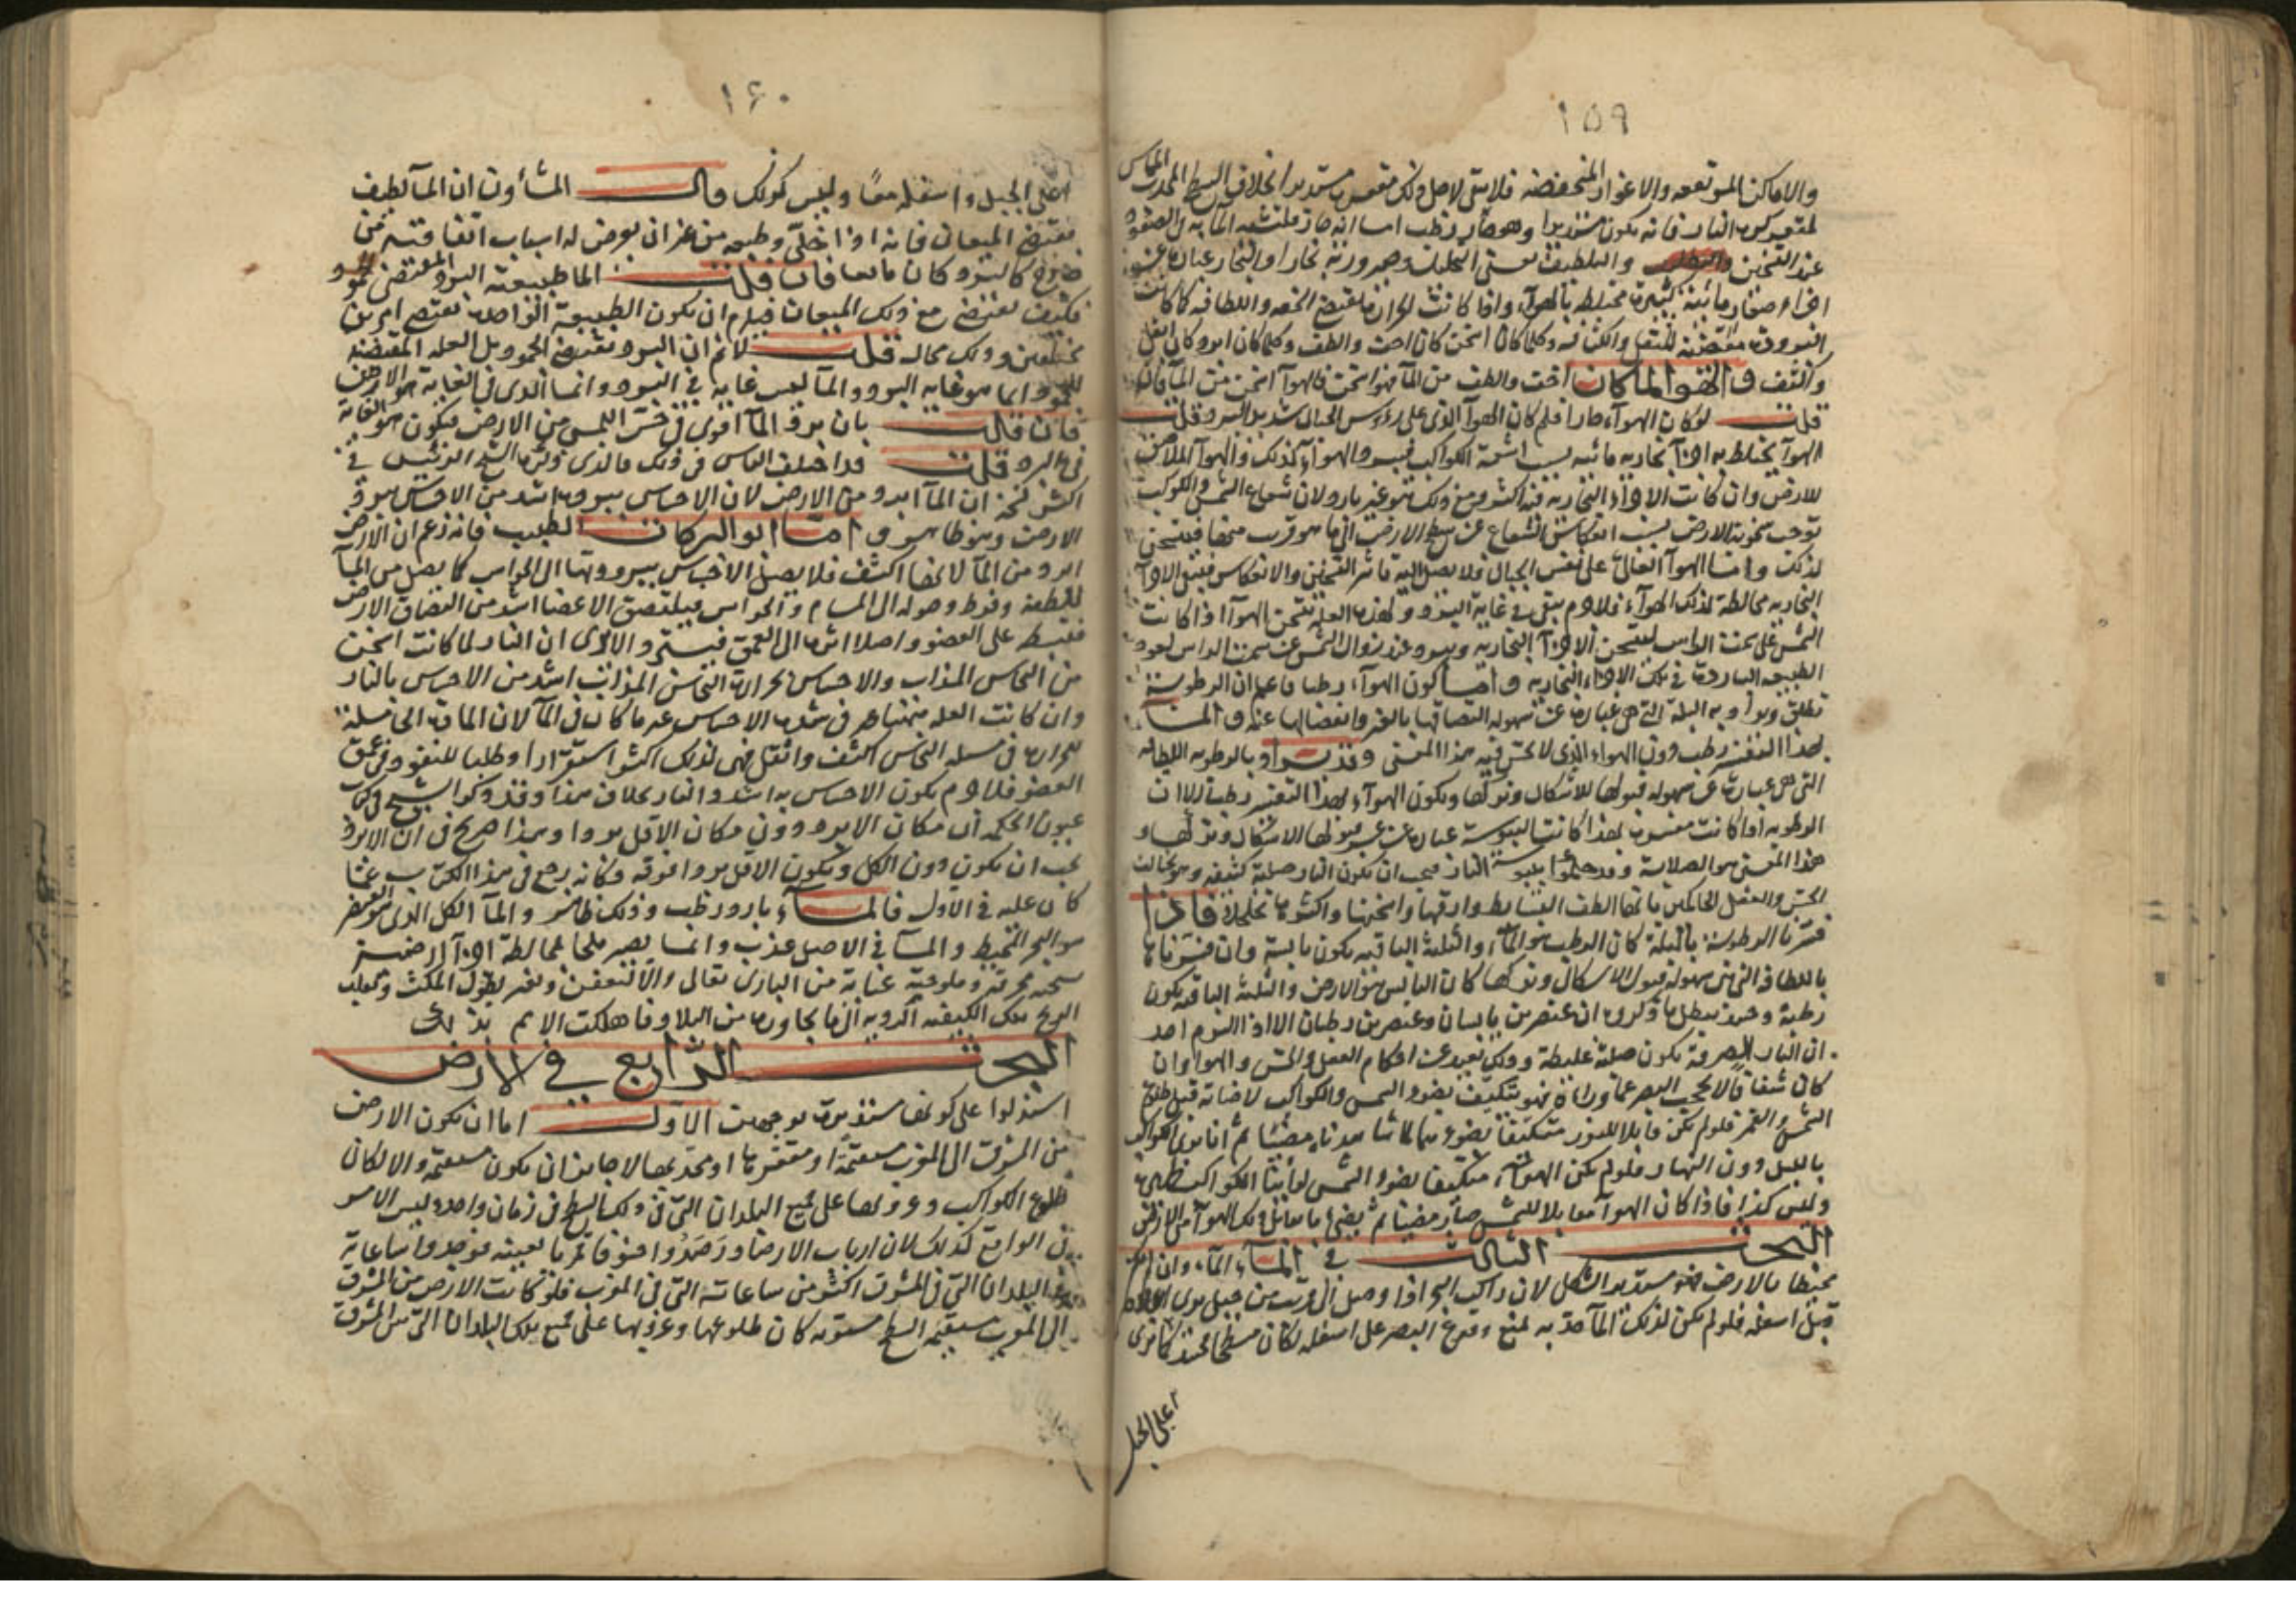 ١٥٩
والاماكن المرتفعه والاغوار المنخفضه فلا يبقى لاجل ذلك مقعره مستديرا بخلاف السطح المحدب المماس
لمقعر كرة النار فانه يكون مستديرا وهو حار رطب اما انه حار فلتشبه الماء به
عند التسخين والتلطيف يعنى التخليه وصيرورته بخارا والبخار عبارة عن
اجزاء صغار مائيه كثيرة مختلطه بالهواء واذا كانت الحرارة مقتضيه الخفه واللطافه كما كانت
البرودة مقتضيه للثقل والكثافه وكلما كان اسخن كان اخف والطف وكلما كان ابرد كان اثقل
واكثف والهوا لما كان اخف والطف من الماء فهو اسخن فالهواء اسخن من الماء فان
قلت لو كان الهواء حارا فلم كان الهواء الذى على رؤوس الجبال شديد البرد قلت
الهواء يختلط به اجزاء بخاريه مائيه بسبب اشعة الكواكب فيبرد الهواء لذلك والهواء الملاصق
للارض وان كانت الاجزاء البخاريه فيه اكثر ومع ذلك فهو غير بارد لان شعاع الشمس والكواكب
توجب سخونة الارض بسبب انعكاس الشعاع عن سطح الارض الى ما هو قرب منها فيتسخن
لذلك واما الهواء العالى على نفس الجبال فلا يصل اليه تاثير التسخين والانعكاس فتبقى الاجزاء
البخاريه مخالطة لذلك الهواء فلا جرم يبقى فى غاية البرد ولهذه العلة يسخن الهواء اذا كانت
الشمس على سمت الراس لتسخن الاجزاء البخاريه ويبرد عند زوال الشمس عن سمت الراس لعود
الطبيعه البارده فى تلك الاجزاء البخاريه واما كون الهواء رطبا فاعلم ان الرطوبه
تطلق ويراد به البلة التى هى عبارة عن سهولة التصاقها بالغير وانفصالها عنه والماء
بهذا التفسير رطب دون الهواء الذى لا يحس فيه هذا المعنى وقد يراد بالرطوبه اللطافه
التى هى عبارة عن سهولة قبولها للاشكال وتركها ويكون الهواء بهذا التفسير رطبا الا ان
الرطوبه اذا كانت مفسره بهذا كانت اليبوسة عبارة عن عسر قبولها الاشكال وتركها و
هذا المعنى هو الصلابة وقد حكموا بيبوسة النار فيجب ان يكون النار صلبة كثيفه وهو يخالف
الحس والعقل الحاكمين بانها الطف البسايط وارقها واسخنها واكثرها تخلخلا فاذا
فسرنا الرطوبة بالبلة كان الرطب هو الماء والثلثة الباقيه يكون يابسة وان فسرناها
باللطافه التى هى سهولة قبول الاشكال وتركها كان اليابس هو الارض والثلثة الباقيه يكون
رطبة وحينئذ يبطل ما قالوه ان عنصرين يابسان وعنصرين رطبان الا اذا التزم احد
ان النار الصرفة يكون صلبة غليظة وذلك بعيد عن احكام العقل والحس والهوا وان
كان شفافا لا يحجب البصر عما وراءه فهو يتكيف بضوء الشمس والكواكب لاضاءته قبل طلوع
الشمس والقمر فلو لم يكن قابلا للنور متكيفا بضوءهما لما شاهدناه مضيئا ثم انا نرى الكواكب
بالليل دون النهار فلو لم يكن الهواء متكيفا بضوء الشمس لرأينا الكواكب ظاهرة
وليس كذا فاذا كان الهواء مقابلا للشمس صار مضيئا ثم يضئ ما يقابل ذلك الهواء من الارض
البحث الثالث فى الماء الماء وان لم
محيطا بالارض فهو مستدير الشكل لان راكب البحر اذا وصل الى قرب من جبل يرى اعلاه
قبل اسفله فلو لم يكن لذلك الماء حدبه لمنع وقوع البصر على اسفله لكان مسطحا فحينئذ كنا نرى
اعلى الجبل
١٦٠
اعلى الجبل واسفله معا وليس كذلك قال المشاؤن ان الماء لطيف
مقتضى الميعان فانه اذا خلى وطبعه من غير ان يعرض له اسباب اتفاقيه من
خارج كالبرد كان مائعا فان قلت الماء طبيعته البرد المقتضى للجمود
فكيف يقتضى مع ذلك الميعان فيلزم ان يكون الطبيعة الواحدة تقتضى امرين
مختلفين وذلك محال قلت لا نم ان البرد يقتضى الجمود بل العله المقتضيه
للجمود انما هو غاية البرد والماء ليس غاية فى البرد وانما الذى فى الغاية هو الارض
فان قالت بان برد الماء اقوى فى حس اللمس من الارض فيكون هو الغاية
فى البرد قلت قد اختلف الناس فى ذلك فالذى ذكره الشيخ الرئيس فى
اكثر كتبه ان الماء ابرد من الارض لان الاحساس ببرده اشد من الاحساس ببرد
الارض وهو ظاهر واما ابو البركات الطبيب فانه زعم ان الارض
ابرد من الماء لانها اكثف فلا يصل الاحساس ببرودتها الى الحواس كما يصل من الماء
للطفه وفرط وصوله الى المسام والحواس فيلتصق الاعضا اشد من التصاق الارض
فينبسط على العضو واصلا اثره الى العمق فيستبرد الا ترى ان النار لما كانت اسخن
من النحاس المذاب والاحساس بحرارة النحاس المذاب اشد من الاحساس بالنار
وان كانت العله فيهما ظاهر فى شدة الاحساس غير ما كان فى الماء لان المادة الحاملة
للحرارة فى مسئلة النحاس اكثف واثقل فهى لذلك اكثر استقرارا وطلبا للنفوذ فى عمق
العضو فلا جرم يكون الاحساس به اشد والنار بخلاف هذا وقد ذكر الشيخ فى
عيون الحكمه ان مكان الابرد دون مكان الاقل بردا وهذا صريح فى ان الابرد
يجب ان يكون دون الكل ويكون الاقل بردا فوقه وكانه رجع فى هذا الكتاب عما
كان عليه فى الاول فالماء بارد رطب وذلك ظاهر والماء الكل الذى هو العنصر
هو البحر المحيط والماء فى الاصل عذب وانما يصير ملحا بمخالطة اجزاء ارضية
سبخه محرقة وملوحته عناية من البارى تعالى والا لتعفن وتغير بطول المكث وتحلب
الريح تلك الكيفيه الرديه الى ما يجاوره من البلاد فاهلكت الامم بذلك
البحث الرابع فى الارض
استدلوا على كونها مستديره بوجهين الاول اما ان يكون الارض
من المشرق الى المغرب مستقيمة او مقعره او محدبه لا جايز ان يكون مستقيمة والا لكان
طلوع الكواكب وغروبها على جميع البلدان التى فى ذلك السطح فى زمان واحد وليس الامر
فى الواقع كذلك لان ارباب الارصاد رصدوا خسوفا قمريا بعينه فوجدوا ساعاته
فى البلدان التى فى المشرق اكثر من ساعاته التى فى المغرب فلو كانت الارض من المشرق
الى المغرب مستقيمة السطح مستويه كان طلوعها وغروبها على جميع تلك البلدان التى من المشرق